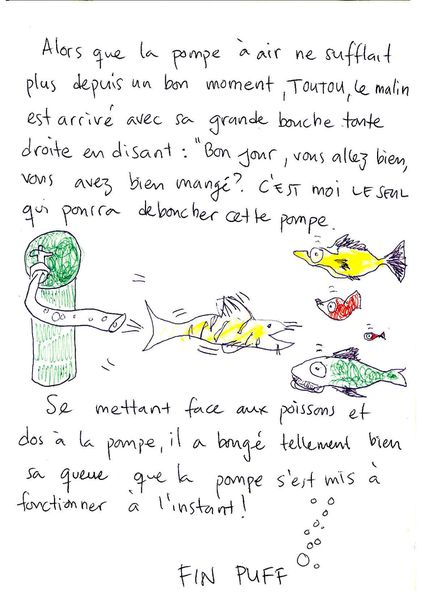 Alors que la pompe à air ne sufflait
plus depuis un bon moment, TOUTOU, le malin
est arrivé avec sa grande bouche toute
droite en disant : "Bon jour, vous allez bien,
vous avez bien mangé? C'EST moi LE SEUL
qui pourra deboncher cette pompe.
Se mettant face aux poissons et
dos à la pompe, il a bougé tellement bien
sa queue que la pompe s'est mis à
fonctionner à l'instant!
FIN PUFF